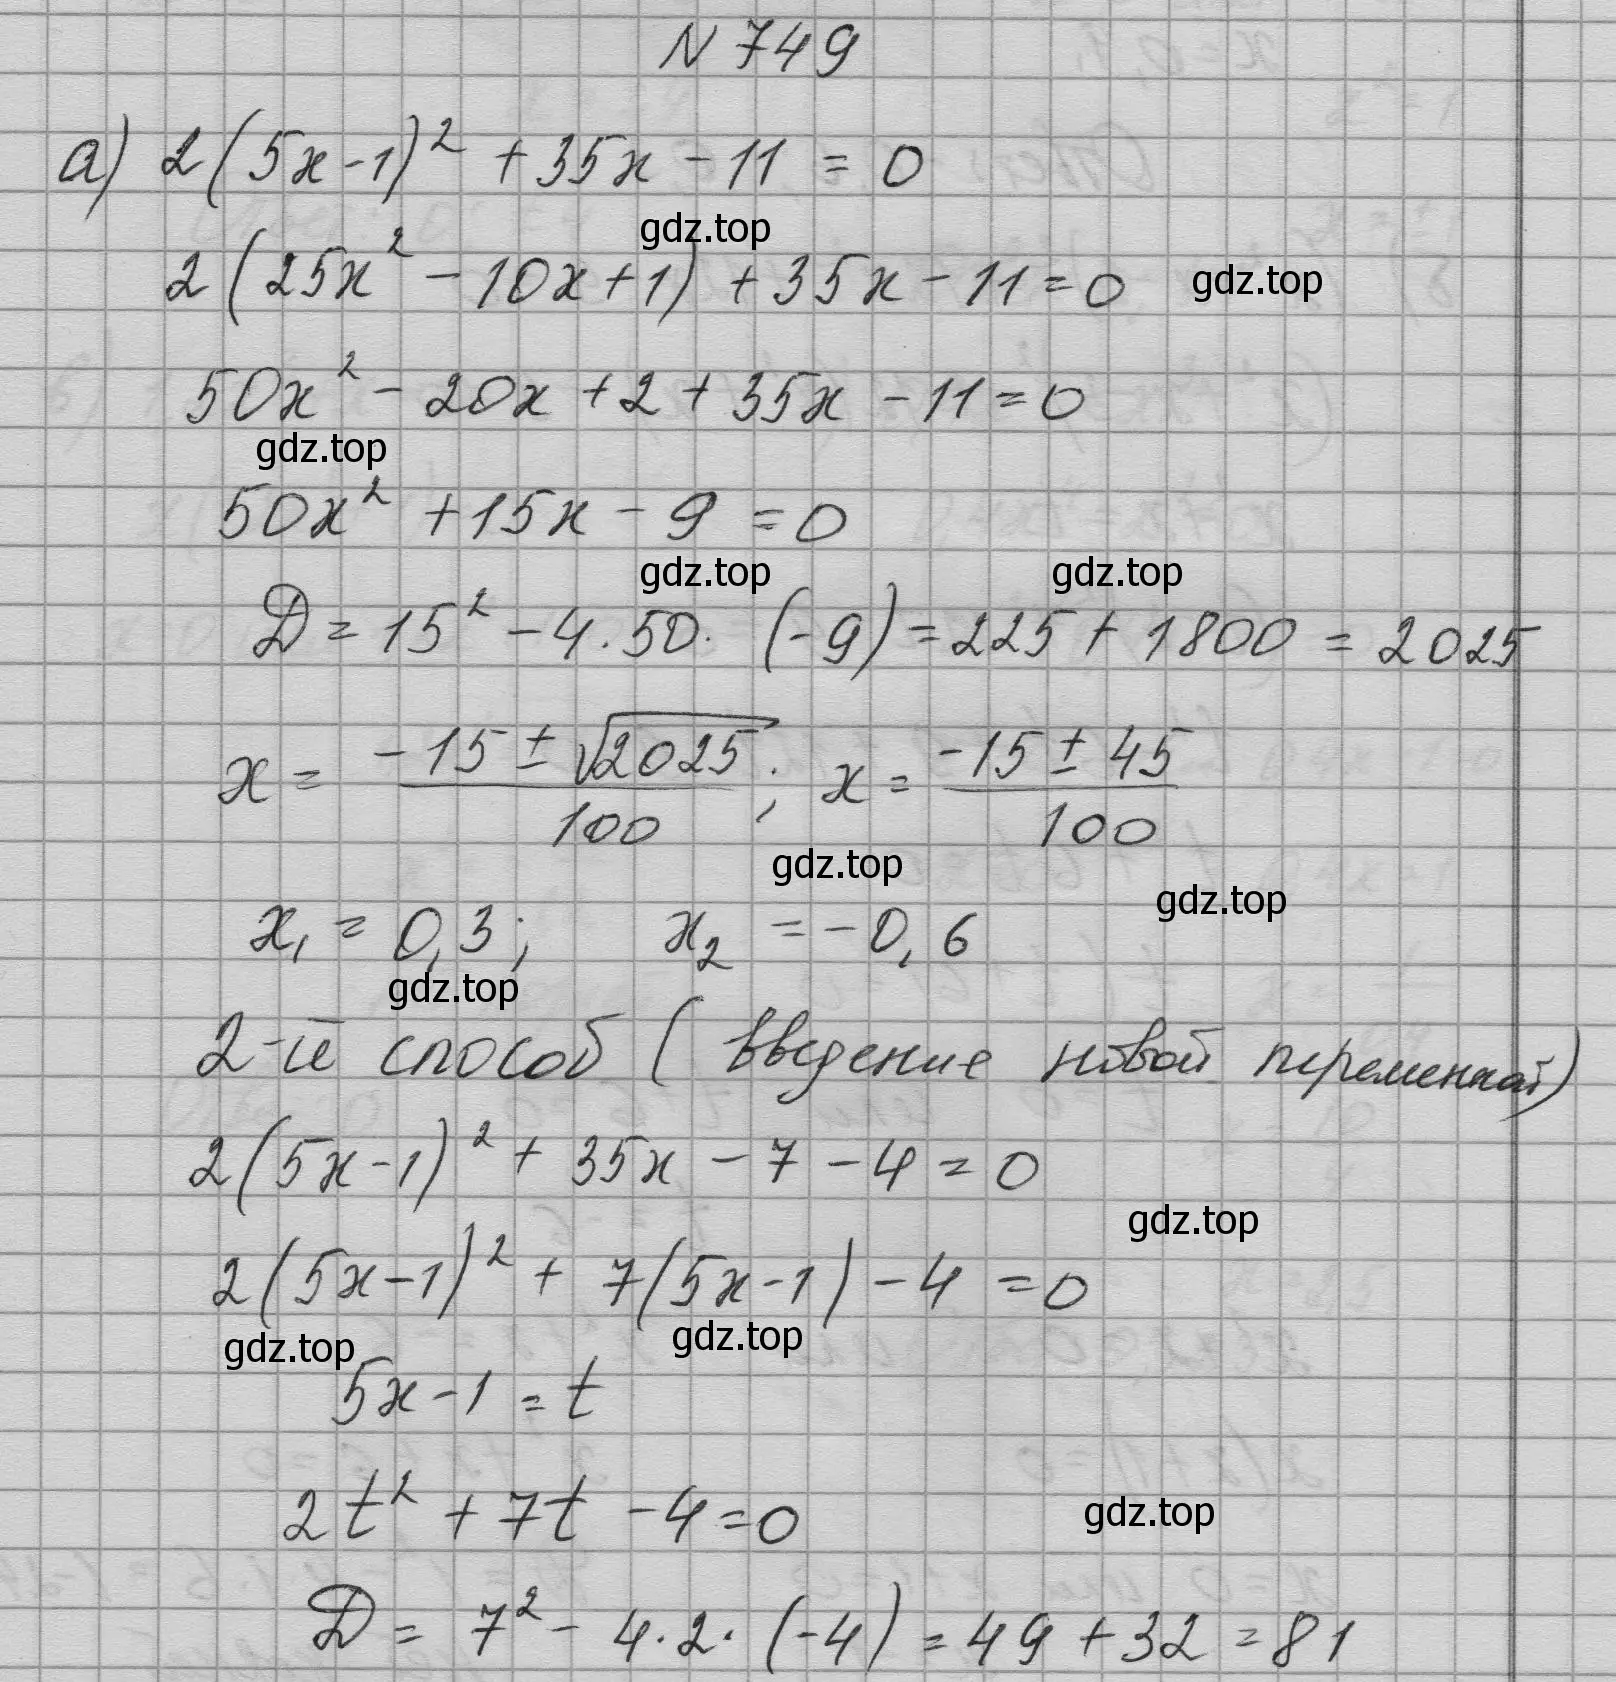 N 749
а) 2(5x-1)² + 35x - 11 = 0
gdz.top
2(25x² - 10x + 1) + 35x - 11 = 0
gdz.top
50x² - 20x + 2 + 35x - 11 = 0
gdz.top
50x² + 15x - 9 = 0
gdz.top gdz.top
D = 15² - 4·50·(-9) = 225 + 1800 = 2025
x = (-15 ± √2025)/100; x = (-15 ± 45)/100
gdz.top
gdz.top
x₁ = 0,3; x₂ = -0,6
gdz.top
2-й способ (введение новой переменной)
2(5x-1)² + 35x - 7 - 4 = 0
gdz.top
2(5x-1)² + 7(5x-1) - 4 = 0
gdz.top gdz.top
5x - 1 = t
2t² + 7t - 4 = 0
gdz.top
D = 7² - 4·2·(-4) = 49 + 32 = 81